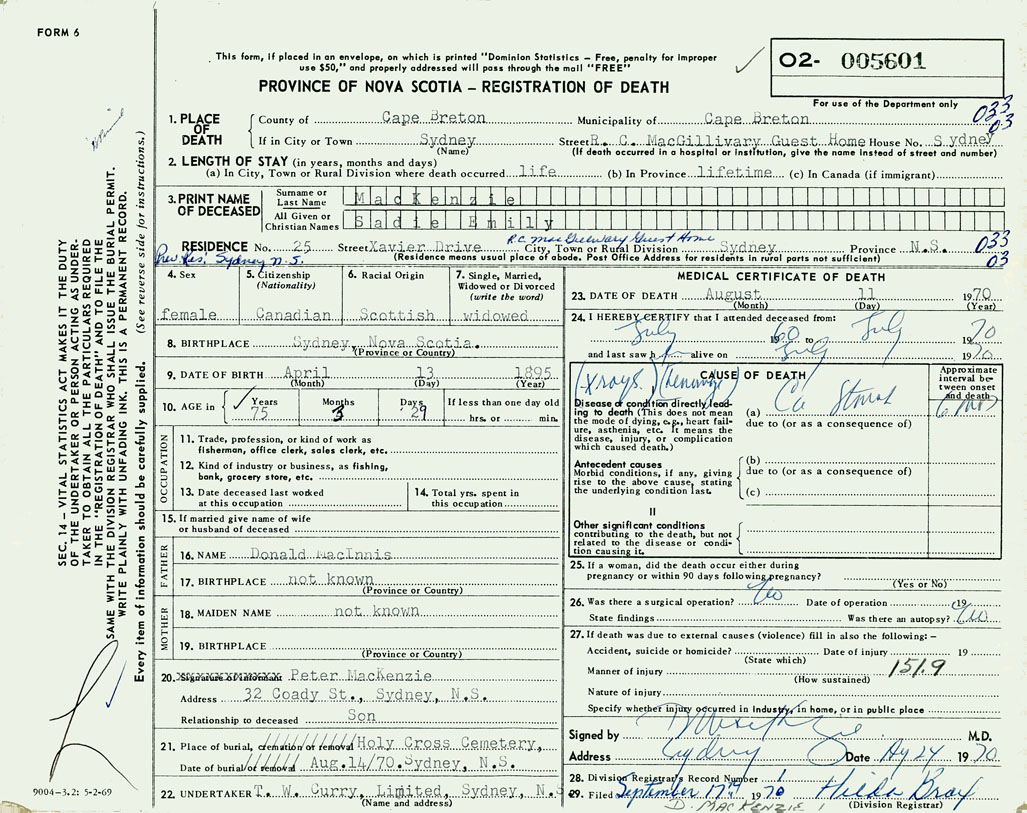 FORM 6
This form, if placed in an envelope, on which is printed "Dominion Statistics – Free, penalty for improper
use $50," and properly addressed will pass through the mail "FREE"
O2- 005601
PROVINCE OF NOVA SCOTIA – REGISTRATION OF DEATH
For use of the Department only
033
03
1. PLACE OF DEATH
County of Cape Breton Municipality of Cape Breton
If in City or Town Sydney Street R. C. MacGillivary Guest Home House No. Sydney
(Name) (If death occurred in a hospital or institution, give the name instead of street and number)
2. LENGTH OF STAY (in years, months and days)
(a) In City, Town or Rural Division where death occurred life (b) In Province lifetime (c) In Canada (if immigrant)
3. PRINT NAME OF DECEASED
Surname or Last Name MacKenzie
All Given or Christian Names Sadie Emily
R.C. MacGillivary Guest Home
RESIDENCE No. 25 Street Xavier Drive City, Town or Rural Division Sydney Province N.S.
033
03
Prev. Res. Sydney N.S. (Residence means usual place of abode. Post Office Address for residents in rural parts not sufficient)
4. Sex
female
5. Citizenship
(Nationality)
Canadian
6. Racial Origin
Scottish
7. Single, Married,
Widowed or Divorced
(write the word)
widowed
8. BIRTHPLACE Sydney, Nova Scotia.
(Province or Country)
9. DATE OF BIRTH April 13 1895
(Month) (Day) (Year)
10. AGE in Years Months Days If less than one day old
75 3 29 hrs. or min.
OCCUPATION
11. Trade, profession, or kind of work as
fisherman, office clerk, sales clerk, etc.
12. Kind of industry or business, as fishing,
bank, grocery store, etc.
13. Date deceased last worked
at this occupation
14. Total yrs. spent in
this occupation
15. If married give name of wife
or husband of deceased
FATHER
16. NAME Donald MacInnis
17. BIRTHPLACE not known
(Province or Country)
MOTHER
18. MAIDEN NAME not known
19. BIRTHPLACE
(Province or Country)
20. Signature of informant Peter MacKenzie
Address 32 Coady St., Sydney, N.S.
Relationship to deceased Son
21. Place of burial, cremation or removal Holy Cross Cemetery,
Date of burial or removal Aug.14/70. Sydney, N.S.
22. UNDERTAKER T. W. Curry, Limited, Sydney, N.S.
(Name and address)
MEDICAL CERTIFICATE OF DEATH
23. DATE OF DEATH August 11 1970
(Month) (Day) (Year)
24. I HEREBY CERTIFY that I attended deceased from:
July 1960 to July 1970
and last saw h alive on July 1970
CAUSE OF DEATH
Approximate
interval be-
tween onset
and death
(Xrays)
Disease or condition directly lead-
ing to death (This does not mean
the mode of dying, e.g., heart fail-
ure, asthenia, etc. It means the
disease, injury, or complication
which caused death.)
(a) Ca Stomach 6 mos
due to (or as a consequence of)
Antecedent causes
Morbid conditions, if any, giving
rise to the above cause, stating
the underlying condition last.
(b)
due to (or as a consequence of)
(c)
II
Other significant conditions
contributing to the death, but not
related to the disease or condi-
tion causing it.
25. If a woman, did the death occur either during
pregnancy or within 90 days following pregnancy?
(Yes or No)
26. Was there a surgical operation? No Date of operation 19
State findings Was there an autopsy? No
27. If death was due to external causes (violence) fill in also the following:–
Accident, suicide or homicide? Date of injury 19
(State which)
Manner of injury 151.9
(How sustained)
Nature of injury
Specify whether injury occurred in industry, in home, or in public place
Signed by M.D.
Address Sydney Date Ag 24 1970
28. Division Registrar's Record Number 1
29. Filed September 17th 1970 Hilda Bray
D. MACKENZIE (Division Registrar)
SEC. 14 – VITAL STATISTICS ACT MAKES IT THE DUTY
OF THE UNDERTAKER OR PERSON ACTING AS UNDER-
TAKER TO OBTAIN ALL THE PARTICULARS REQUIRED
IN THE "REGISTRATION OF DEATH" AND TO FILE THE
SAME WITH THE DIVISION REGISTRAR WHO SHALL ISSUE THE BURIAL PERMIT.
WRITE PLAINLY WITH UNFADING INK. THIS IS A PERMANENT RECORD.
Every item of information should be carefully supplied. (See reverse side for instructions.)
9004-3.2: 5-2-69